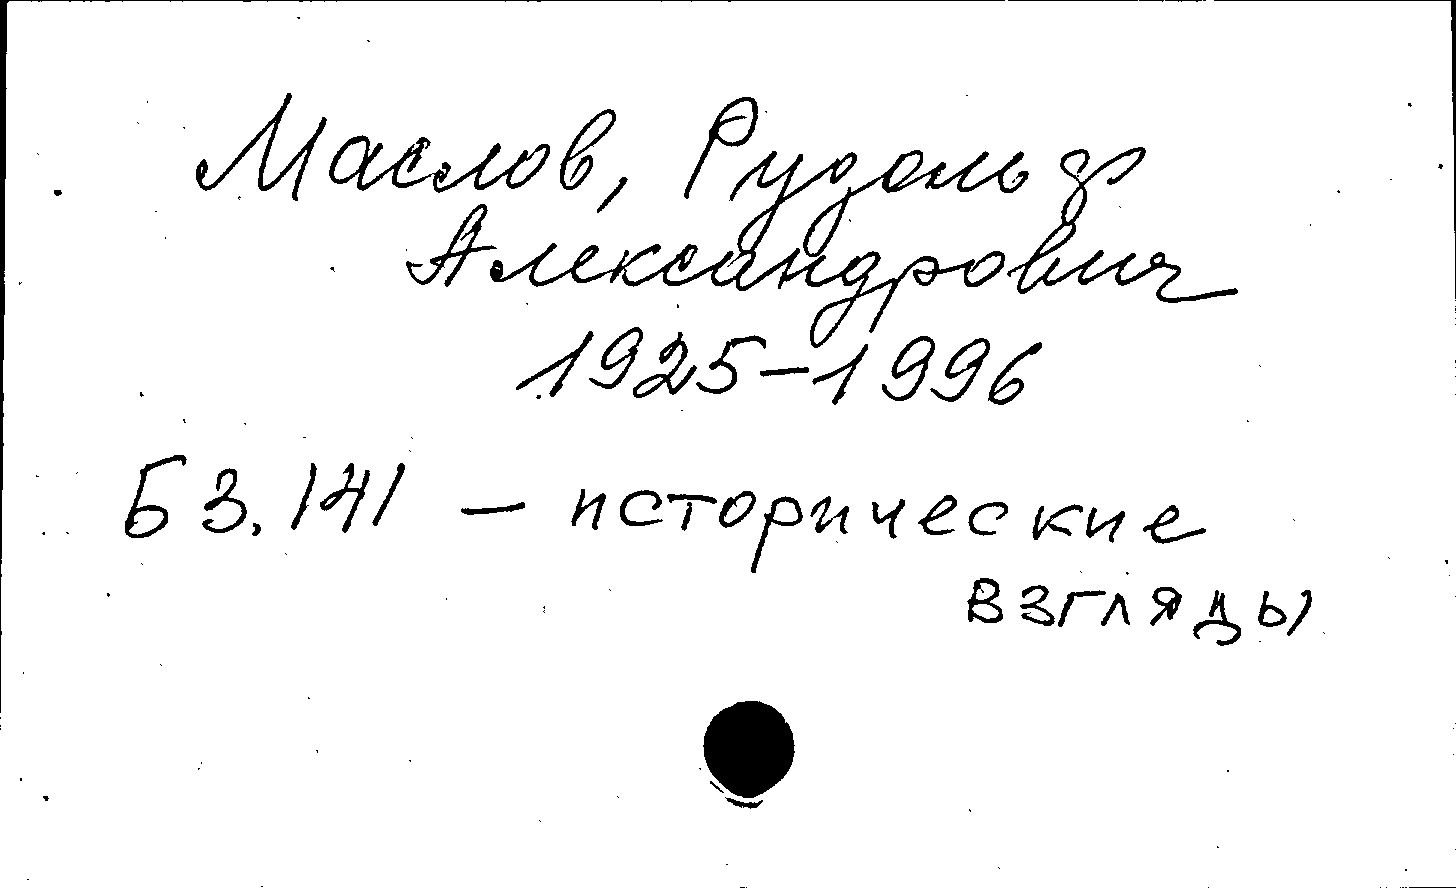 Маслов, Рудольф
Александрович
1925-1996
Б3.141 - исторические
взгляды